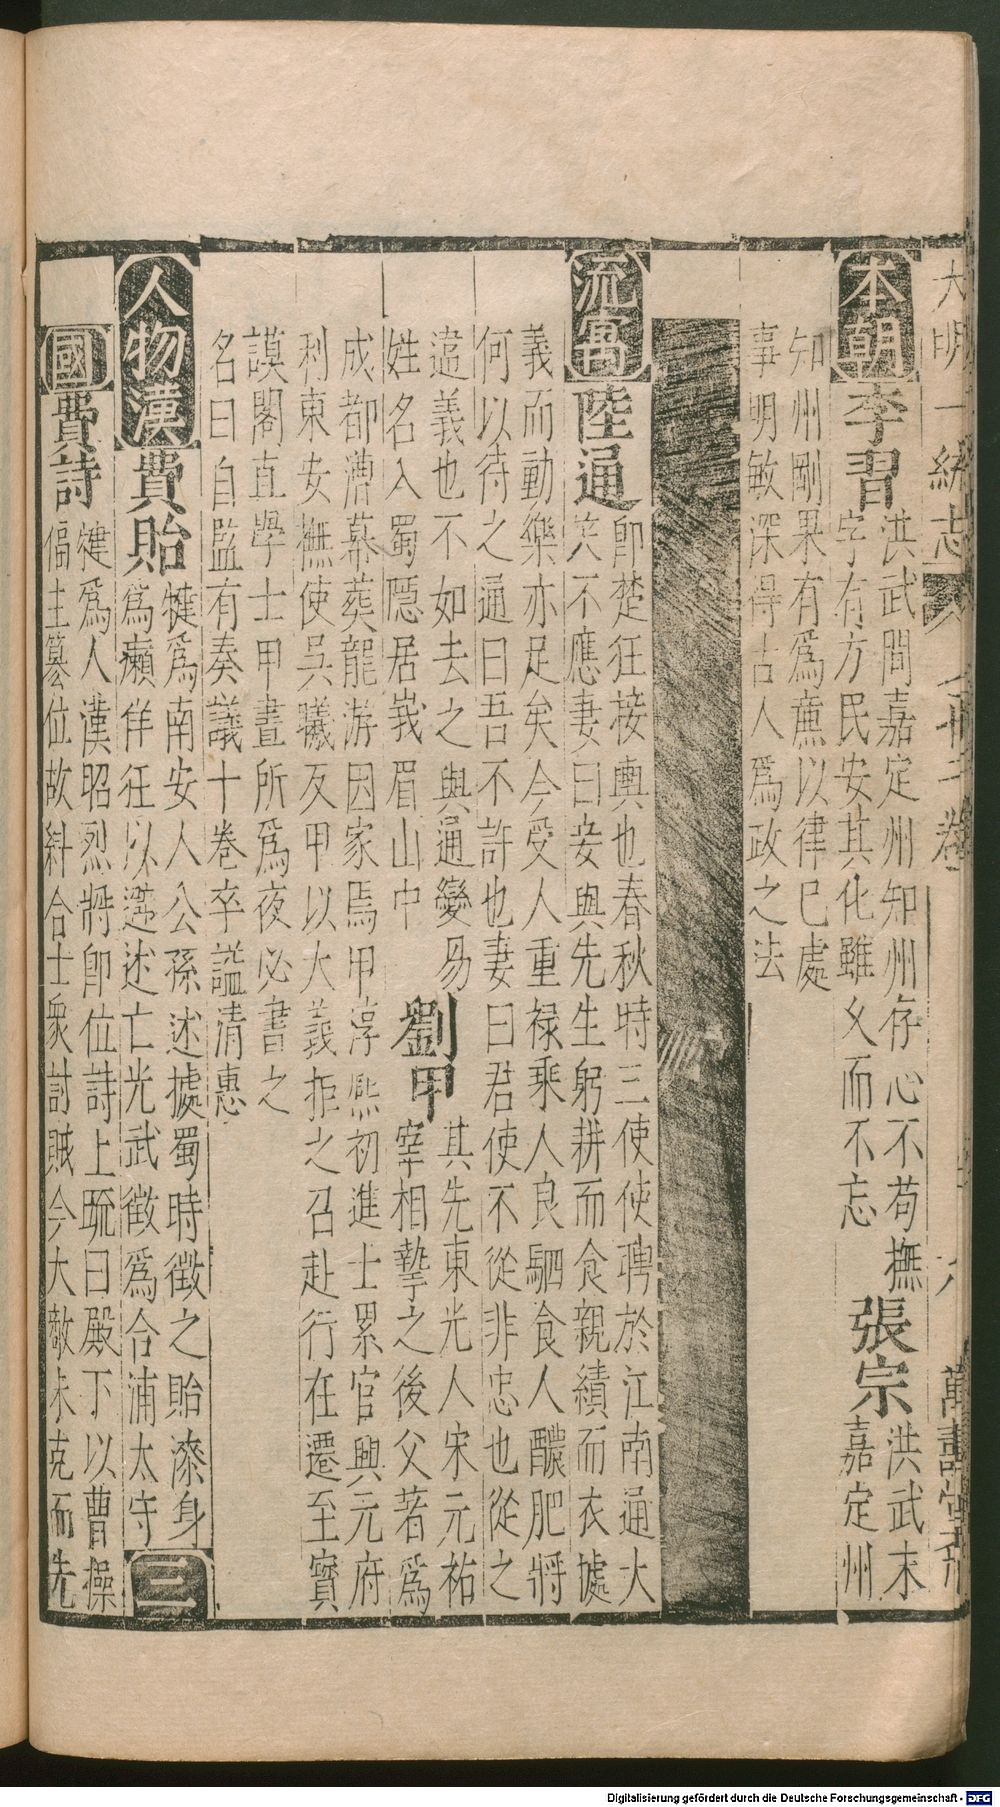 大明一統志 七十二卷 六 萬壽堂刊
本朝李習 洪武間嘉定州知州存心不苟撫
字有方民安其化雖久而不忘 張宗 洪武末
嘉定州
知州剛果有爲㢘以律已處
事明敏深得古人爲政之法
流寓陸通 即楚狂接輿也春秋時三使使聘於江南通大
笑不應妻曰妾與先生躬耕而食親績而衣據
義而動樂亦足矣今受人重禄乘人良駟食人醲肥將
何以待之通曰吾不許也妻曰君使不從非忠也從之
違義也不如去之與通變易
姓名入蜀隱居峩眉山中 劉甲 其先東光人宋元祐
宰相摯之後父著爲
成都漕幕葬龍游因家焉甲淳熙初進士累官興元府
利東安撫使吳曦反甲以大義拒之召赴行在遷至寳
謨閣直學士甲晝所爲夜必書之
名曰自監有奏議十卷卒謚清惠
人物漢費貽 犍爲南安人公孫述據蜀時徵之貽漆身
爲癩佯狂以避述亡光武徵爲合浦太守 三
國費詩 犍爲人漢昭烈將卽位詩上䟽曰殿下以曹操
偪主簒位故糾合士衆討賊今大敵未克而先
Digitalisierung gefördert durch die Deutsche Forschungsgemeinschaft - DFG